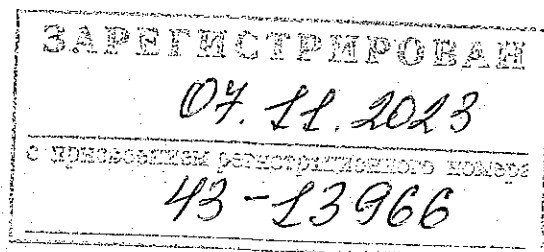 ЗАРЕГИСТРИРОВАН
07.11.2023
с присвоением регистрационного номера
43-13966